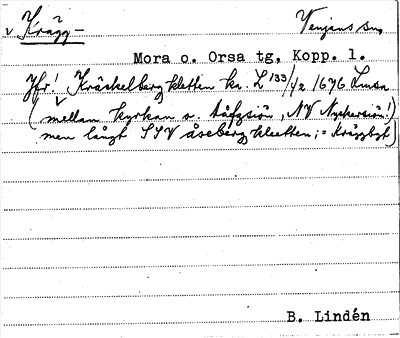 v Krägg- Venjans sn,
Mora o. Orsa tg, Kopp. l.
Jfr! Kräckelberg kletten kr. L 133/42 1696
(mellam kyrkan o. , NV Nyckersiön!)
men långt SSV åsebergkleetten; = Kräggbgt)
B. Lindén